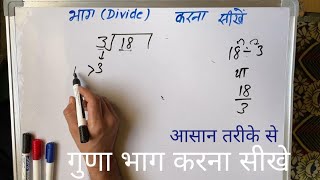 भाग (Divide) करना सीखें
3 18
18 ÷ 3
> 3
या
18
3
आसान तरीके से
गुणा भाग करना सीखे